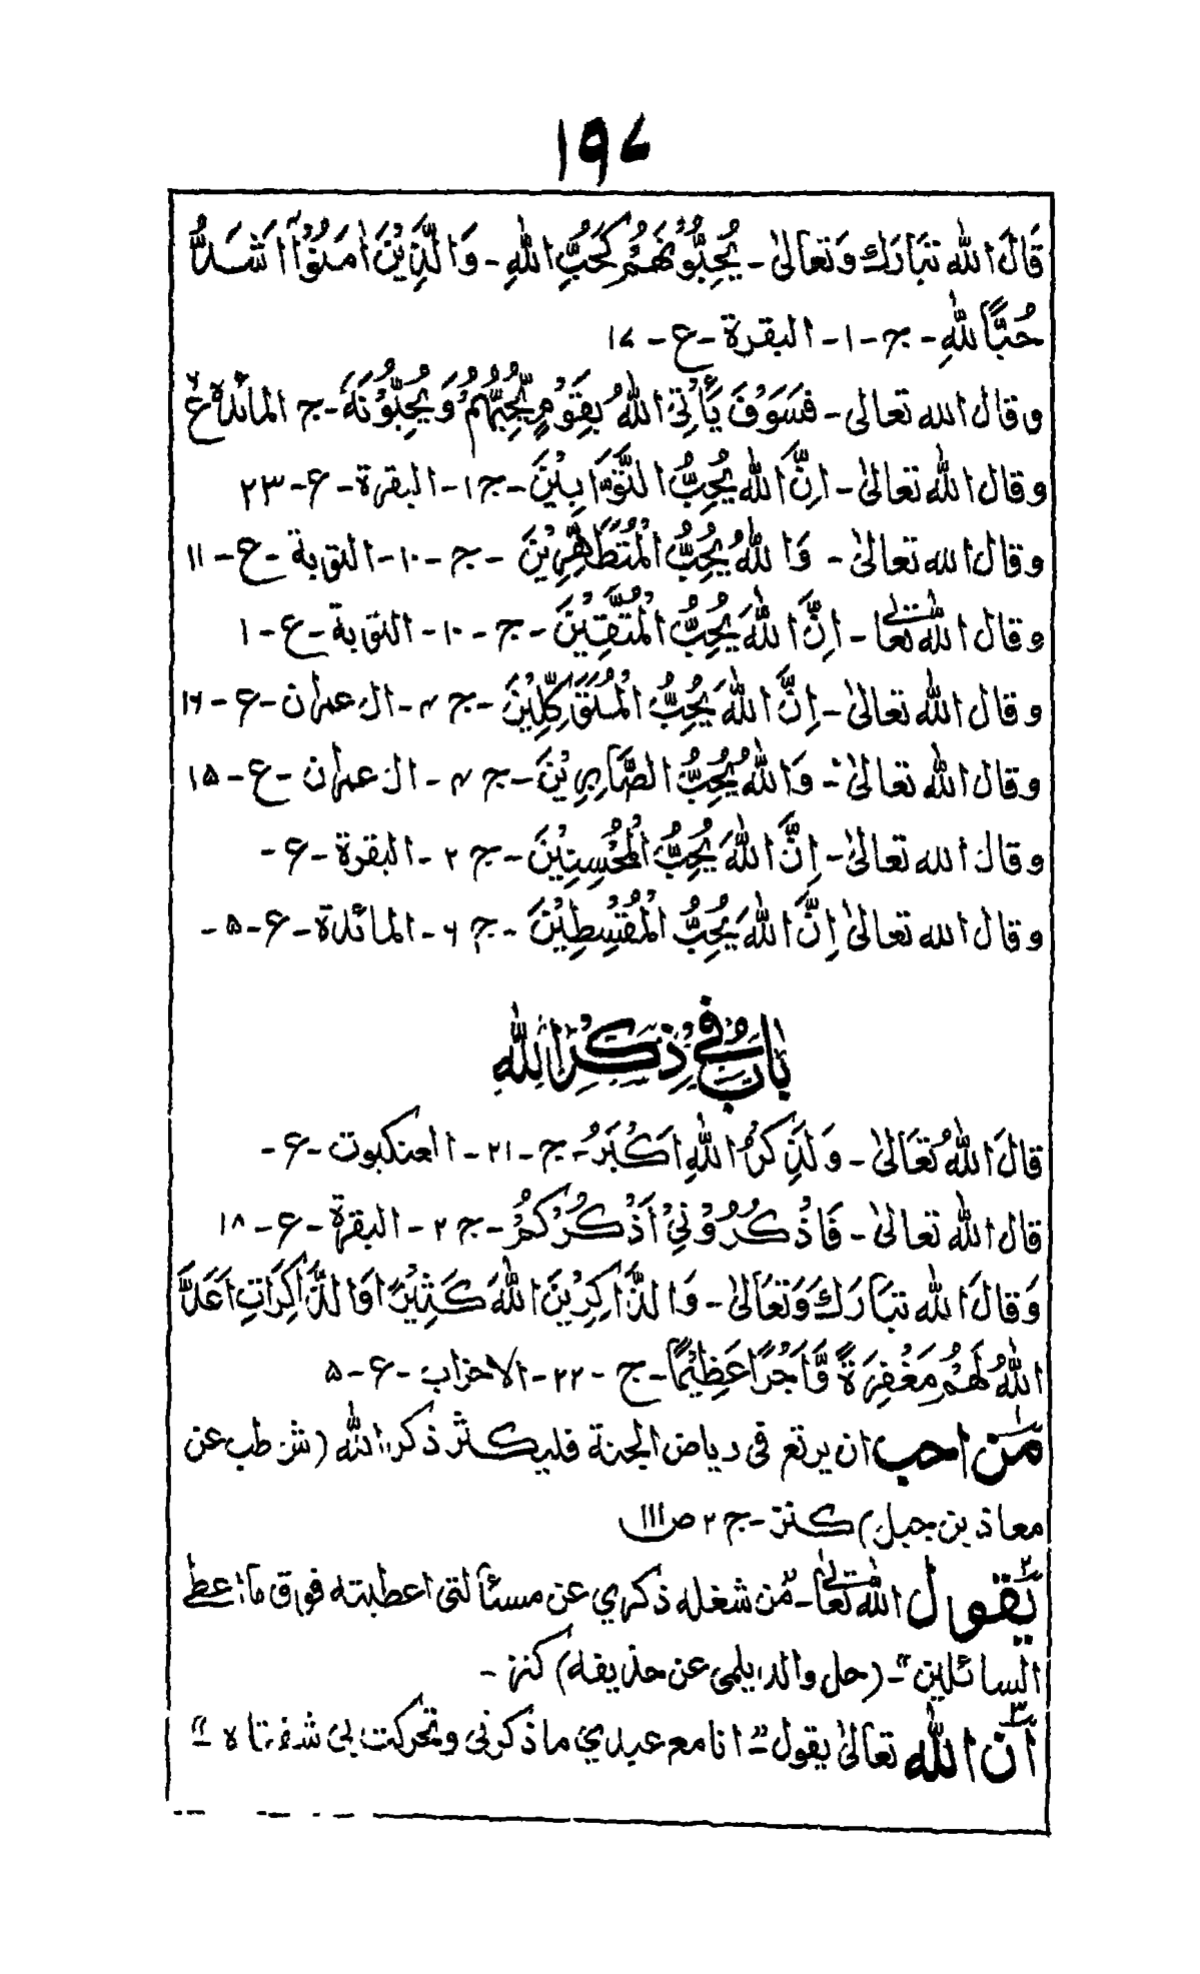 ۱۹۷
قَالَ اللّٰه تَبَارَكَ وَتَعَالىٰ - يُحِبُّوْنَهُمْ كَحُبِّ اللّٰهِ - وَالَّذِيْنَ اٰمَنُوْٓا اَشَدُّ
حُبًّا لِّلّٰهِ - ج - ۱ - البقرة - ع - ۱۷
وقال الله تعالى - فَسَوْفَ يَأْتِى اللّٰهُ بِقَوْمٍ يُّحِبُّهُمْ وَيُحِبُّوْنَهٗ - ج المائدة ع
وقال اللّٰه تعالىٰ - اِنَّ اللّٰهَ يُحِبُّ التَّوَّابِيْنَ - ج ۱ - البقرة - ع - ۲۳
وقال الله تعالىٰ - وَاللّٰهُ يُحِبُّ الْمُتَطَهِّرِيْنَ - ج - ۱۰ - التوبة - ح - ۱۱
وقال اللّٰه تعالىٰ - اِنَّ اللّٰهَ يُحِبُّ الْمُتَّقِيْنَ - ج - ۱۰ - التوبة - ع - ۱
وقال اللّٰه تعالىٰ - اِنَّ اللّٰهَ يُحِبُّ الْمُتَوَكِّلِيْنَ - ج ۴ - ال عمران - ع - ۱۶
وقال اللّٰه تعالىٰ - وَاللّٰهُ يُحِبُّ الصَّابِرِيْنَ - ج ۴ - ال عمران - ع - ۱۵
وقال الله تعالىٰ - اِنَّ اللّٰهَ يُحِبُّ الْمُحْسِنِيْنَ - ج ۲ - البقرة - ع -
وقال الله تعالىٰ اِنَّ اللّٰهَ يُحِبُّ الْمُقْسِطِيْنَ - ج ۶ - المائدة - ع - ۵ -
بَابٌ فِي ذِكْرِ اللّٰهِ
قَالَ اللّٰهُ تَعَالىٰ - وَلَذِكْرُ اللّٰهِ اَكْبَرُ - ج - ۲۱ - العنكبوت - ع -
قال اللّٰه تعالىٰ - فَاذْكُرُوْنِيْ اَذْكُرْكُمْ - ج ۲ - البقرة - ع - ۱۸
وَقَالَ اللّٰه تَبَارَكَ وَتَعَالىٰ - وَالذَّاكِرِيْنَ اللّٰهَ كَثِيْرًا وَالذَّاكِرَاتِ اَعَدَّ
اللّٰهُ لَهُمْ مَغْفِرَةً وَّاَجْرًا عَظِيْمًا - ج - ۲۲ - الاحزاب - ع - ۵
مَن احب ان يرتع فى رياض الجنة فليكثر ذكر اللّٰه (ش طب عن
معاذ بن جبل) كنز - ج ۲ ص ۱۱۱
يقول اللّٰه تعالىٰ - "من شغله ذكري عن مسئالتى اعطيته فوق ما اعطى
السائلين" - (حل والديلمى عن حذيفه) كنز -
اَن اللّٰه تعالىٰ يقول "انا مع عبدي ما ذكرنى وتحركت بى شفتاه"